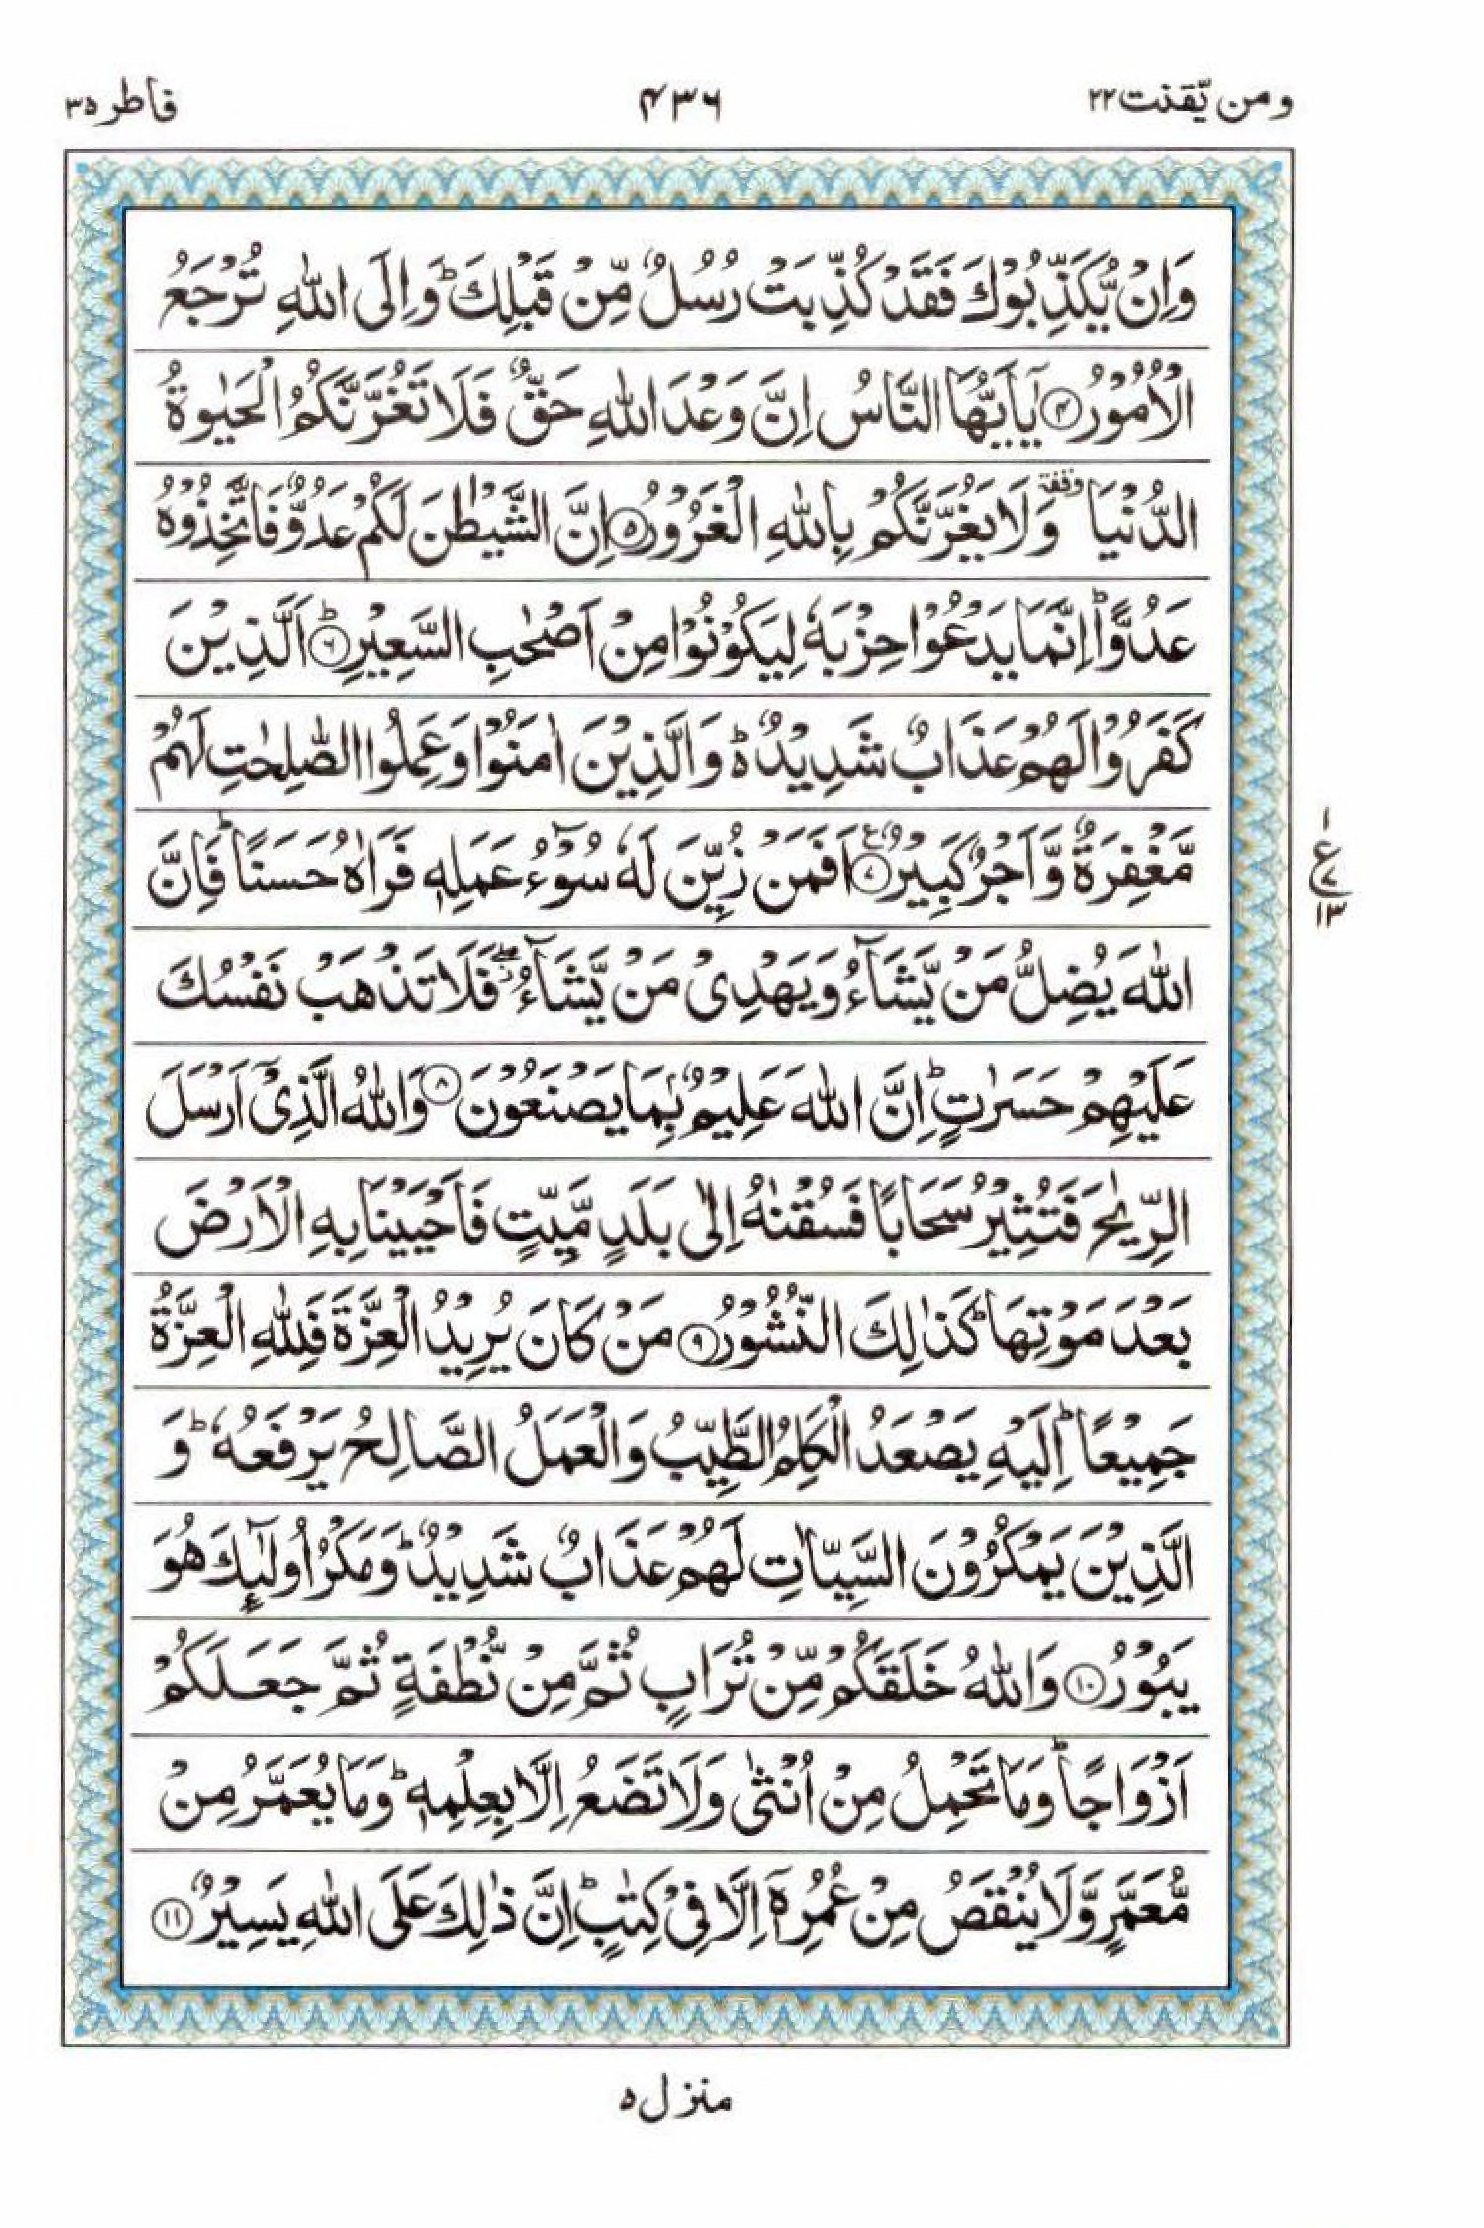 ومن یّقنت ۲۲
۴۳۶
فاطر ۳۵
وَاِنْ یُّكَذِّبُوْكَ فَقَدْ كُذِّبَتْ رُسُلٌ مِّنْ قَبْلِكَ ؕ وَاِلَى اللّٰهِ تُرْجَعُ
الْاُمُوْرُ ۝۴ یٰۤاَیُّهَا النَّاسُ اِنَّ وَعْدَ اللّٰهِ حَقٌّ فَلَا تَغُرَّنَّكُمُ الْحَیٰوةُ
الدُّنْیَا وقفة وَلَا یَغُرَّنَّكُمْ بِاللّٰهِ الْغَرُوْرُ ۝۵ اِنَّ الشَّیْطٰنَ لَكُمْ عَدُوٌّ فَاتَّخِذُوْهُ
عَدُوًّا ؕ اِنَّمَا یَدْعُوْا حِزْبَهٗ لِیَكُوْنُوْا مِنْ اَصْحٰبِ السَّعِیْرِ ۝۶ؕ اَلَّذِیْنَ
كَفَرُوْا لَهُمْ عَذَابٌ شَدِیْدٌ ؕ۬ وَالَّذِیْنَ اٰمَنُوْا وَعَمِلُوا الصّٰلِحٰتِ لَهُمْ
مَّغْفِرَةٌ وَّاَجْرٌ كَبِیْرٌ ۝۷ ع اَفَمَنْ زُیِّنَ لَهٗ سُوْٓءُ عَمَلِهٖ فَرَاٰهُ حَسَنًا ؕ فَاِنَّ
۱
ع
۷
۱۳
اللّٰهَ یُضِلُّ مَنْ یَّشَآءُ وَیَهْدِیْ مَنْ یَّشَآءُ ۖؗ فَلَا تَذْهَبْ نَفْسُكَ
عَلَیْهِمْ حَسَرٰتٍ ؕ اِنَّ اللّٰهَ عَلِیْمٌۢ بِمَا یَصْنَعُوْنَ ۝۸ وَاللّٰهُ الَّذِیْۤ اَرْسَلَ
الرِّیٰحَ فَتُثِیْرُ سَحَابًا فَسُقْنٰهُ اِلٰی بَلَدٍ مَّیِّتٍ فَاَحْیَیْنَا بِهِ الْاَرْضَ
بَعْدَ مَوْتِهَا ؕ كَذٰلِكَ النُّشُوْرُ ۝۹ مَنْ كَانَ یُرِیْدُ الْعِزَّةَ فَلِلّٰهِ الْعِزَّةُ
جَمِیْعًا ؕ اِلَیْهِ یَصْعَدُ الْكَلِمُ الطَّیِّبُ وَالْعَمَلُ الصَّالِحُ یَرْفَعُهٗ ؕ وَ
الَّذِیْنَ یَمْكُرُوْنَ السَّیِّاٰتِ لَهُمْ عَذَابٌ شَدِیْدٌ ؕ وَمَكْرُ اُولٰٓىِٕكَ هُوَ
یَبُوْرُ ۝۱۰ وَاللّٰهُ خَلَقَكُمْ مِّنْ تُرَابٍ ثُمَّ مِنْ نُّطْفَةٍ ثُمَّ جَعَلَكُمْ
اَزْوَاجًا ؕ وَمَا تَحْمِلُ مِنْ اُنْثٰی وَلَا تَضَعُ اِلَّا بِعِلْمِهٖ ؕ وَمَا یُعَمَّرُ مِنْ
مُّعَمَّرٍ وَّلَا یُنْقَصُ مِنْ عُمُرِهٖۤ اِلَّا فِیْ كِتٰبٍ ؕ اِنَّ ذٰلِكَ عَلَی اللّٰهِ یَسِیْرٌ ۝۱۱
منزل ۵